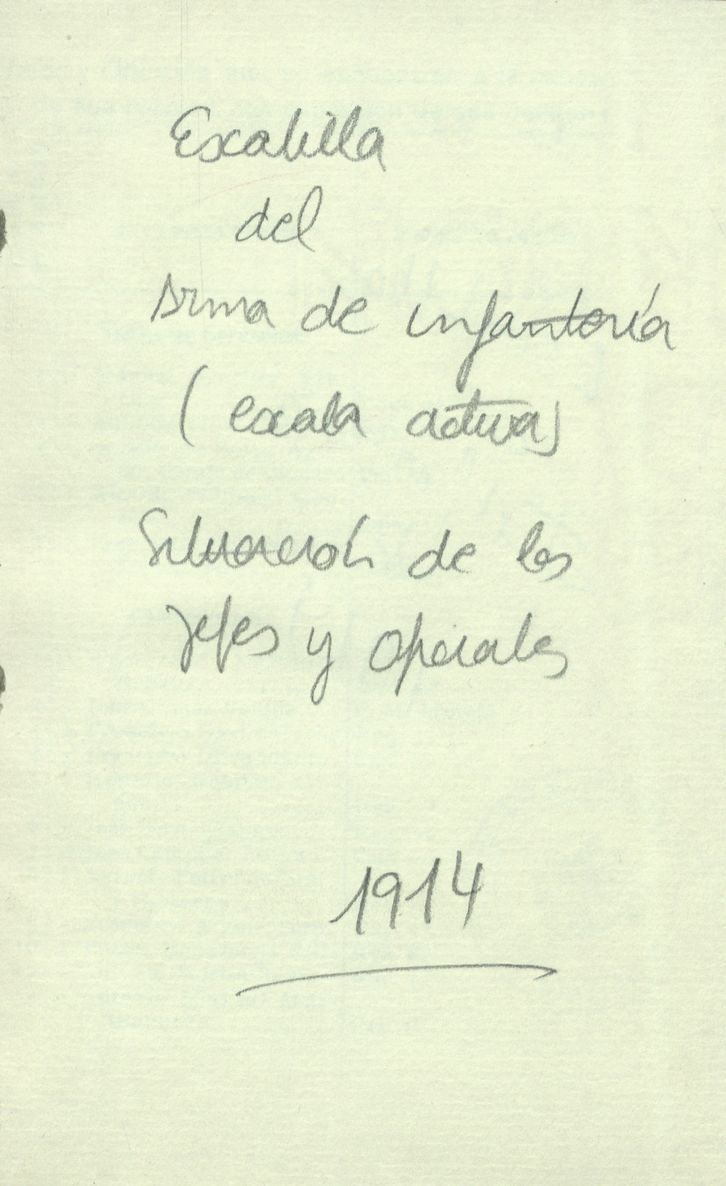 Escalilla
del
Arma de infantería
(escala activa)
Situación de los
Jefes y Oficiales
1914